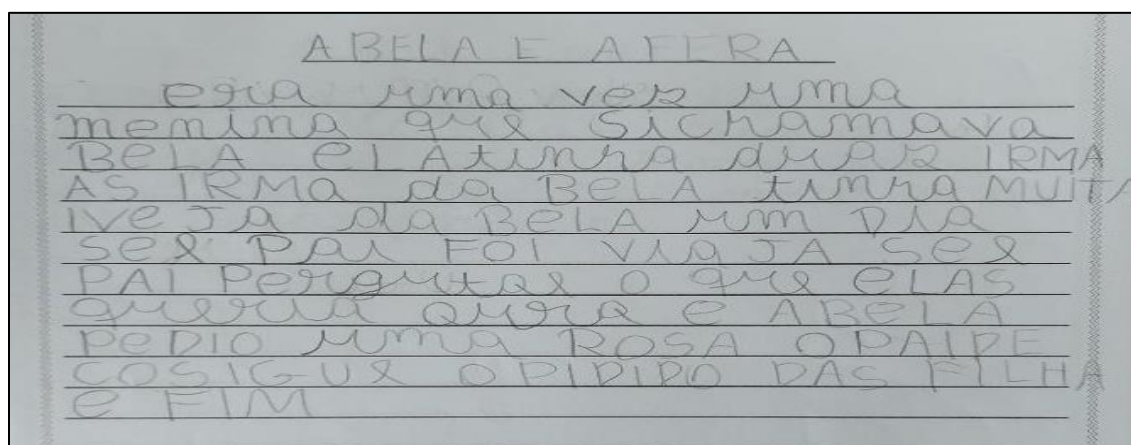 A BELA E A FERA
era uma vez uma
menina que sichamava
BeLA elAtinha duaz IRMA
AS IRMA da BeLA tinha MUITA
IVeJA da BeLA um DIA
seu PAi FOI viaJA seu
PAI Pergutou o que eLAS
queria e ABeLA
PeDIO uma ROSA OPAIPE
COSIGUE OPIDIDO DAS FILHA
e FIM